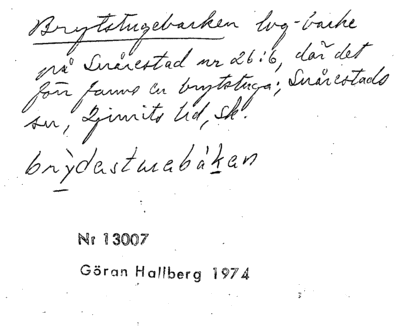 Brytstugebacken bvg-backe
på Snårestad nr 26:6, där det
förr fanns en brytstuga; Snårestads
sn, Ljunits hd, Sk.
brỳdastuabákan
Nr 13007
Göran Hallberg 1974